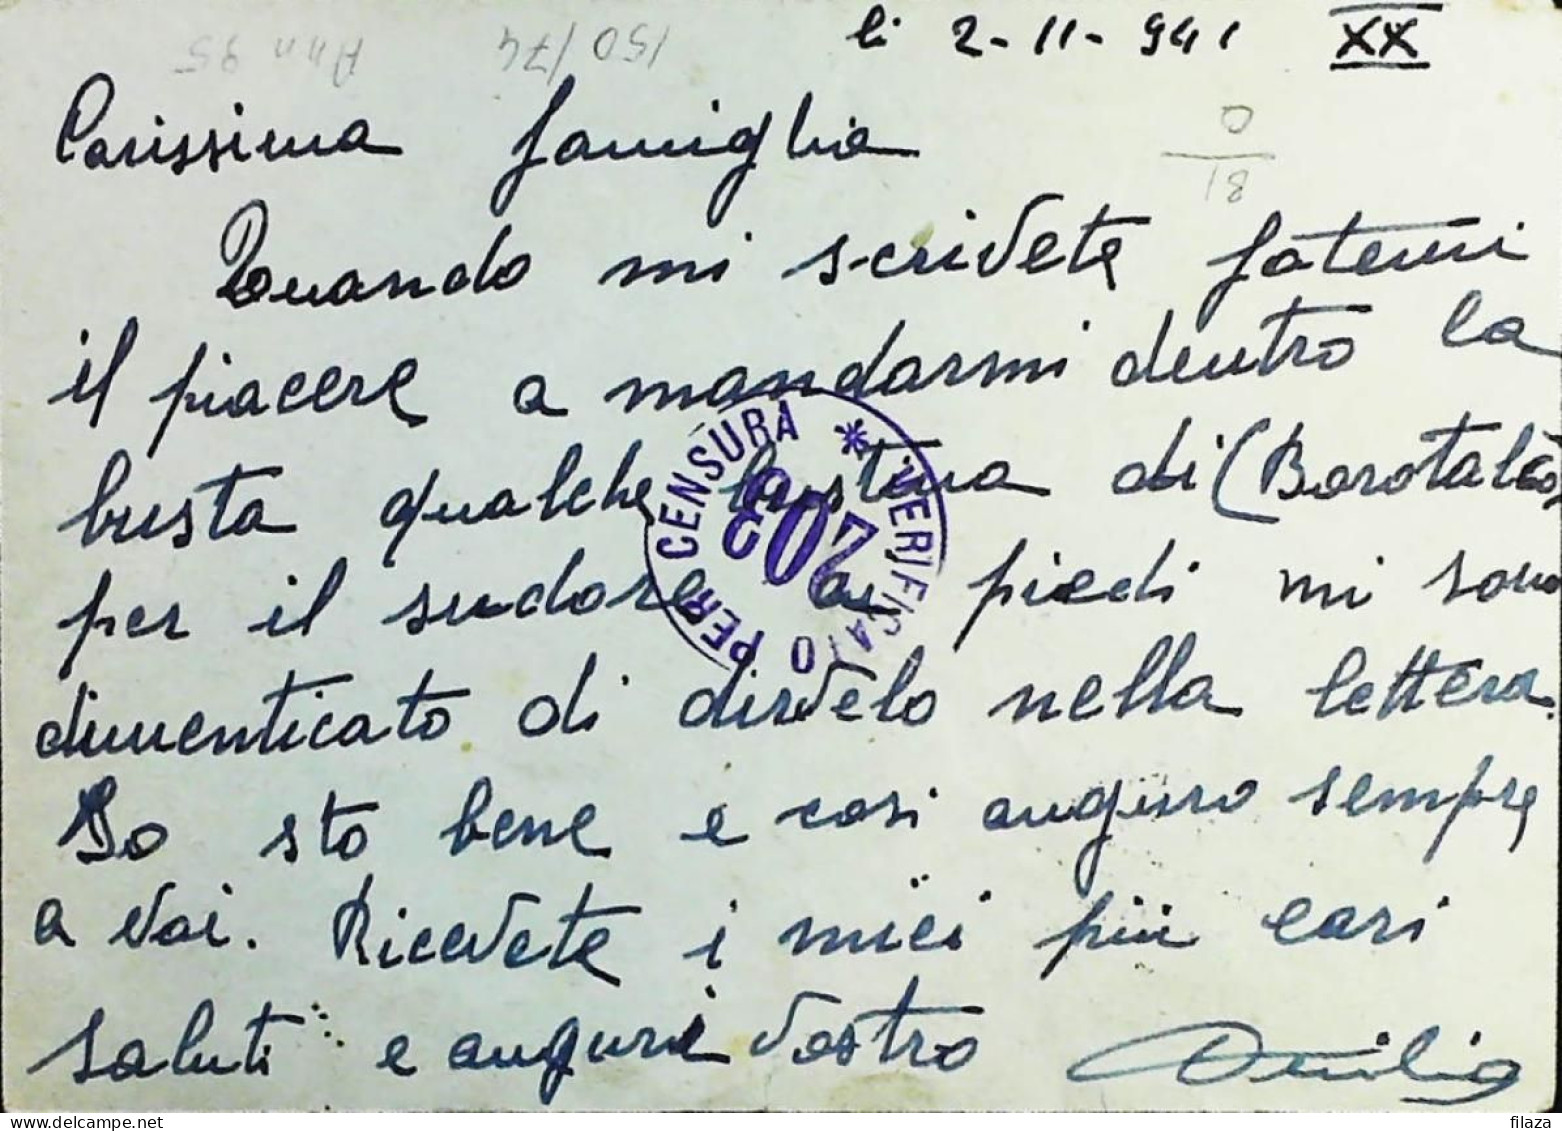 li 2-11-941 XX
150/74
Ann 95
0
81
Carissima famiglia
Quando mi scrivete fatemi
il piacere a mandarmi dentro la
busta qualche bustina di (Borotalco)
per il sudore ai piedi mi sono
dimenticato di dirvelo nella lettera.
Io sto bene e cosi auguro sempre
a voi. Ricevete i miei più cari
saluti e auguri vostro
VERIFICATO PER CENSURA *
203
filaza